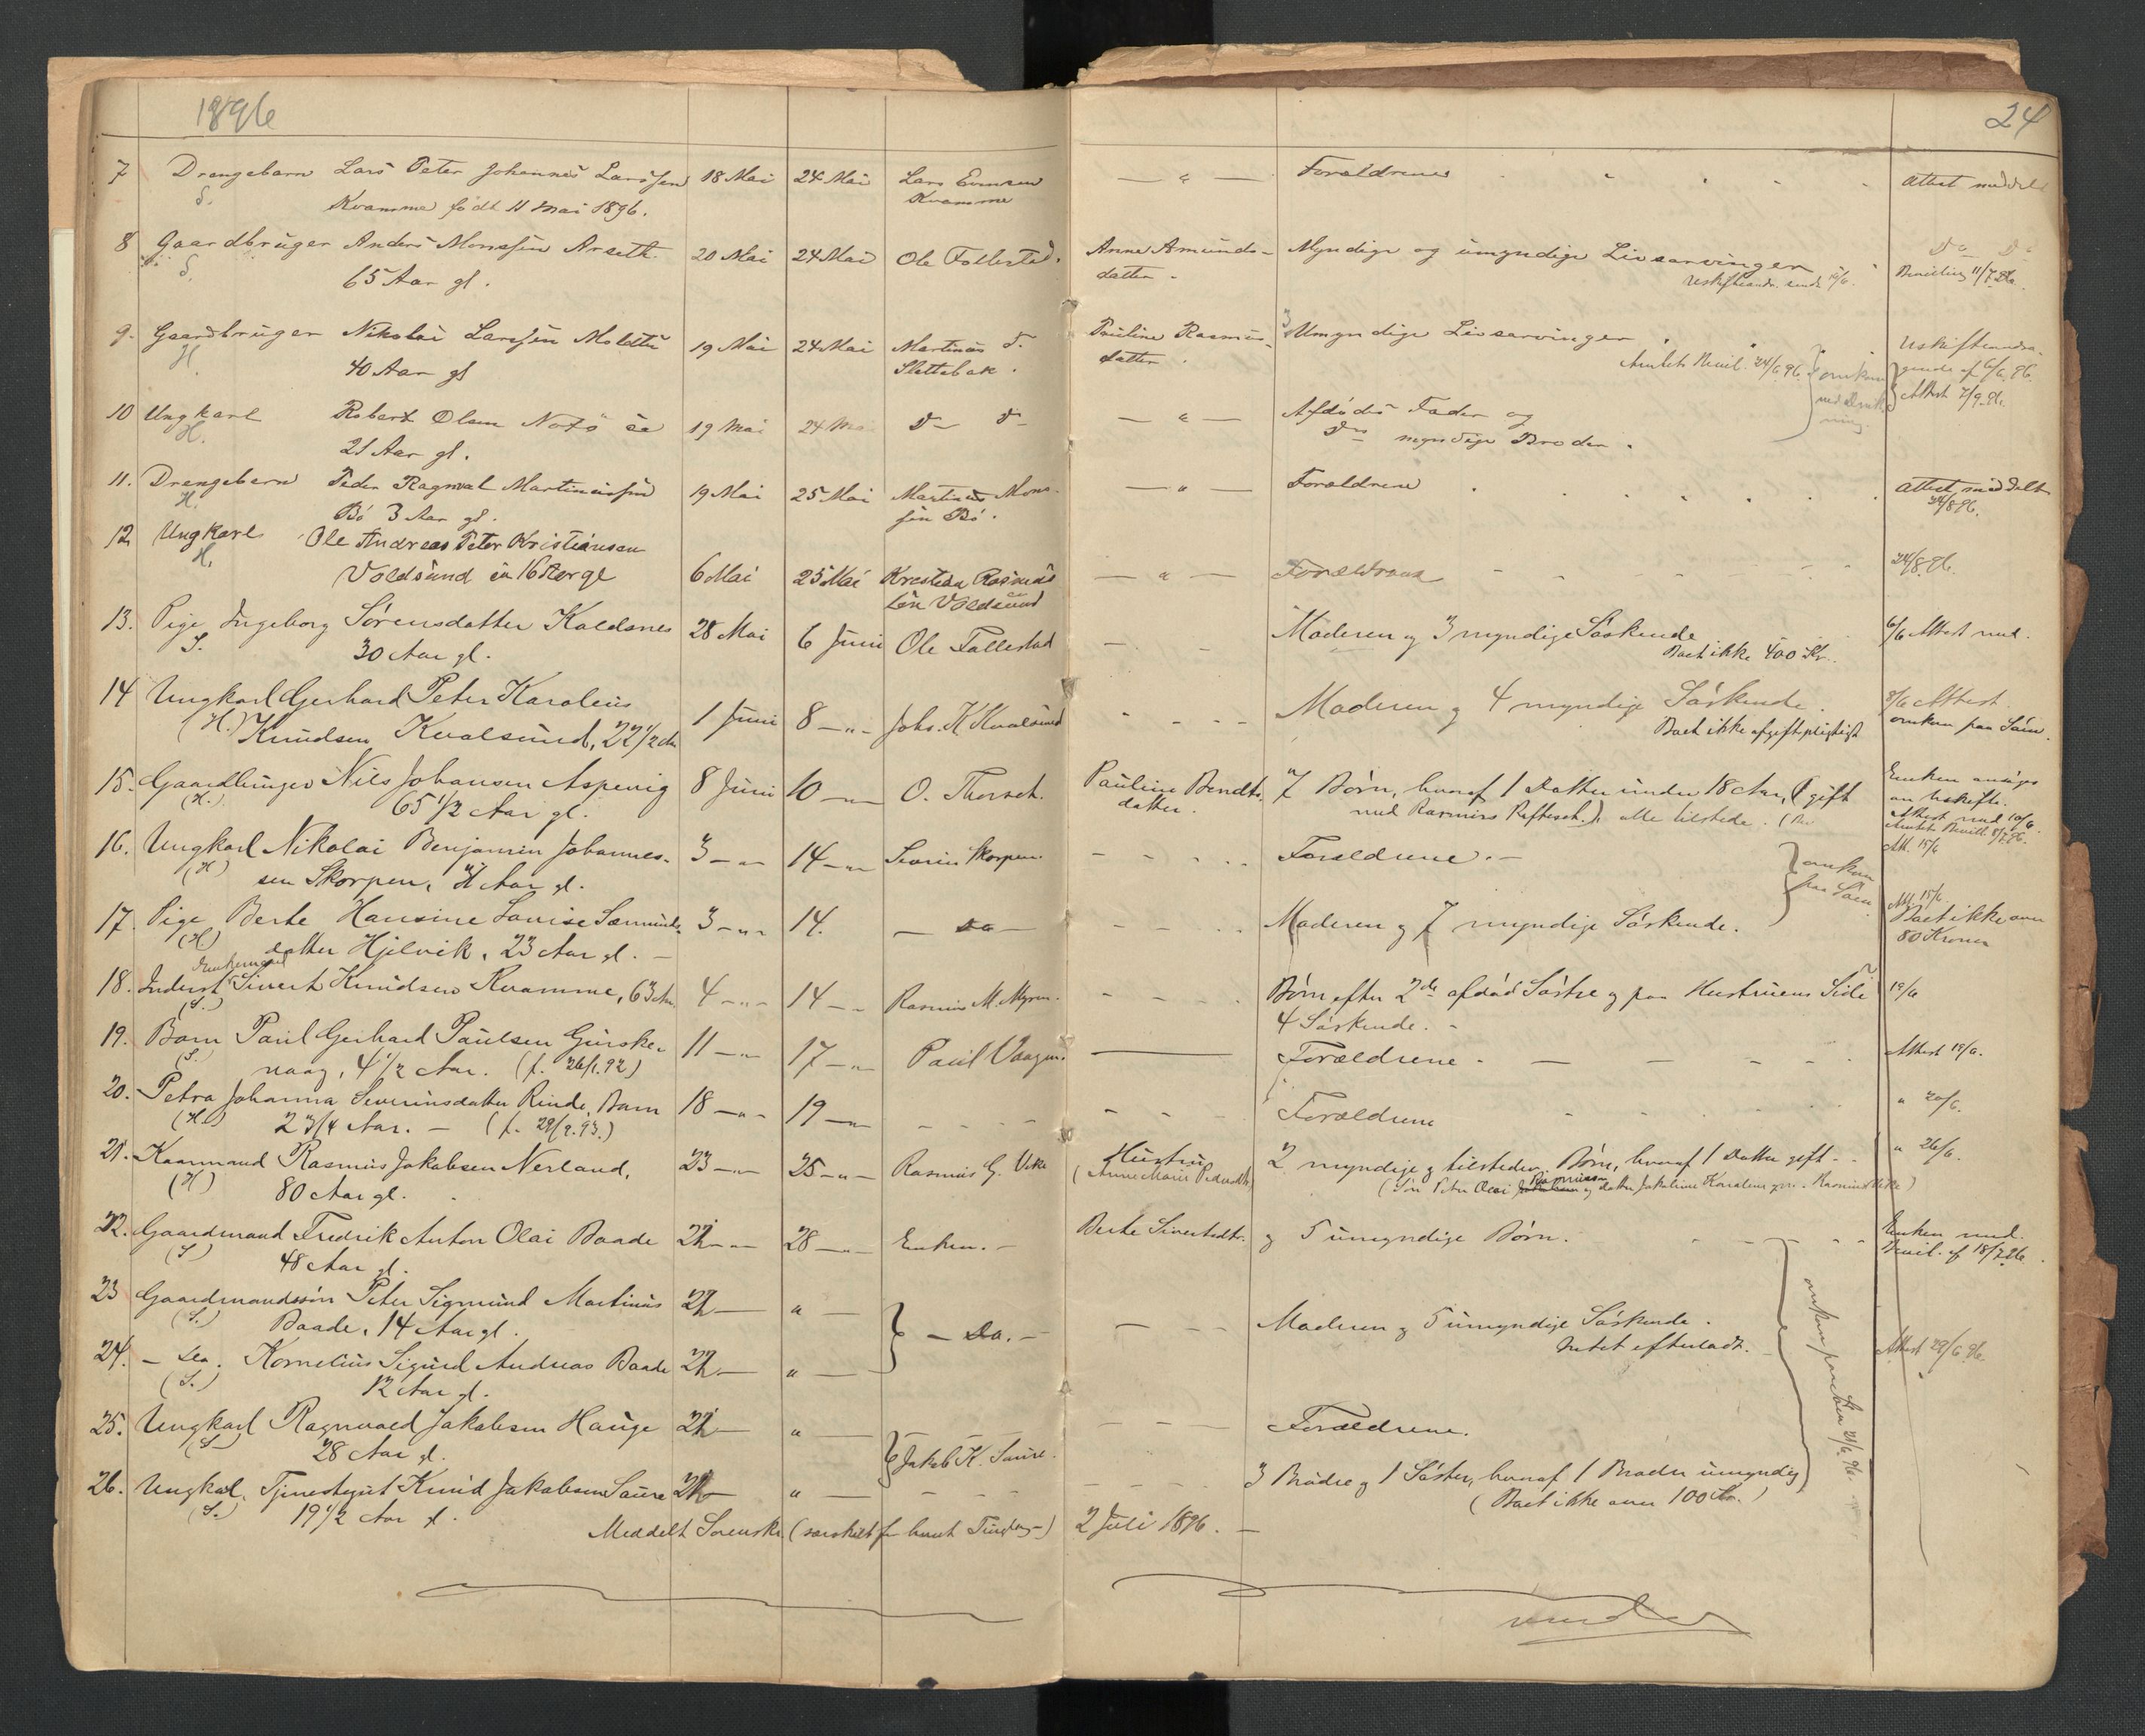 1896
24
7 Drengebarn Lars Peter Johannes Larssen 18 Mai 24 Mai Lars Evensen — " — Forældrene Attest meddelt
S. Kvamme født 11 Mai 1896. Kvamme
8 Gaardbruger Anders Monssen Arseth 20 Mai 24 Mai Ole Follestad. Anne Amunds- Myndige og umyndige Livsarvinger
S. 65 Aar gl. datter. Bevilling 11/7 96.
9. Gaardbruger Nikolai Larssen Moldtu 19 Mai 24 Mai Martinus Pauline Rasmus- 3 Umyndige Livsarvinger Uskifteandra-
H. 40 Aar gl Slettebak. datter. Amtets Bevil. 24/6 96. omkom gende af 6/6 96.
Attest 7/9 96.
10 Ungkarl Robert Olsen 19 Mai 24 Mai D— D— — " — Afdødes Fader og ved druk-
H. 21 Aar gl. Ds myndige Broder. ning.
11. Drengebarn Peder Ragnval Martinussen 19 Mai 25 Mai Martinus Mons- — " — Forældrene Attest meddelt
H. Bø 3 Aar gl. sen Bø. 24/8 96.
12 Ungkarl Ole Andreas Peter Kristiansen
H. Voldsund 6 Mai 25 Mai Rasmus — " — Forældrene 24/8. 96.
Voldsund
13. Pige Ingeborg Sørensdatter Koldsnes 28 Mai 6 Juni Ole Follestad — Moderen og 3 myndige Søskende 6/6 Attest med.
S. 30 Aar gl. Boet ikke 400 Kr.
14 Ungkarl Gerhard Peter Karolius 1 Juni 8 — " — Johs. K. Kvalsund Moderen og 4 myndige Søskende. 8/6 Attest.
(H.) Knudsen Kvalsund, 22 1/2 Aar Boet ikke afgiftspligtigt omkom paa Søen.
15. Gaardbruger Nils Johansen Aspevig 8 Juni 10 — " — O. Thorseth. Pauline Bendts- 7 Børn, hvoraf 1 Datter under 18 Aar, 1 gift Enken ansøger
(H.) 65 1/2 Aar gl. datter. med Rasmus alle tilstede. om Uskifte.
Attest med 10/6.
16. Ungkarl Nikolai Benjamin Johannes- 3 — " — 14 — " — Severin Skorpen. Forældrene. — omkom Att. 15/6
(H) sen Skorpen, Aar gl. paa Søen
17. Pige Berte Hansine Lovise Sæmunds- 3 — " — 14. — Do — Moderen og 7 myndige Søskende. Att. 15/6.
(H) datter Hjelvik, 23 Aar gl. — Boet ikke over
80 Kroner
Enkemand
18. Inderst Sivert Knudsen Kvamme, 63 Aar 4 — " — 14 — " Rasmus M. Myren. Børn efter 2de afdød Søstre og paa Hustruens Side 19/6
(S.) 4 Søskende. —
19. Barn Paul Gerhard Paulsen Gurske- 11 — " — 17 — " — Paul Vaagen. — Forældrene — Attest 19/6.
(S.) vaag, 4 1/2 Aar. (f. 26/1. 92)
20. Petra Johanna Severinsdatter Rinde, Barn 18 — " — 19 — " — Forældrene " 20/6.
(H.) 2 3/4 Aar. — (f. 29/9. 93.)
21. Kaarmand Rasmus Jakobsen Nerland, 23 — " — 25 — " — Rasmus G. Hustru 2 myndige og tilstedev. Børn, hvoraf 1 Datter gift. " 26/6.
(H) 80 Aar gl. (Anne Marie Pedersdtr) (Søn Peter Olai Rasmussen og datter Jakobine
22. Gaardmand Fredrik Anton Olai Baade 22 — " — 28 — " — Enken. — Berte Sivertsdtr. og 5 umyndige Børn. Enken med.
(S) 48 Aar gl. Bevil. af 18/7 96.
23 Gaardmandssøn Peter Sigmund Martinus 22 — " — Moderen og 5 umyndige Søskende.
(S.) Baade, 14 Aar gl. — Do. — Intet efterladt.
24. — Do. Kornelius Sigurd Andreas Baade 22 — " — Attest 28/6 96.
(S.) 12 Aar gl. omkom paa Søen
25. Ungkarl Ragnvald Jakobsen Hauge 22 — " — Forældrene.
(S) 28 Aar gl. Jakob K. Saure.
26. Ungkarl, Tjenestegut Knud Jakobsen Saure 22 — " — 3 Brødre og 1 Søster, hvoraf 1 Broder umyndig
(S.) 19 1/2 Aar gl. (Boet ikke over 100 Kr.)
Meddelt Sorenskr. (særskilt for hvert Tinglag —) 2 Juli 1896. —